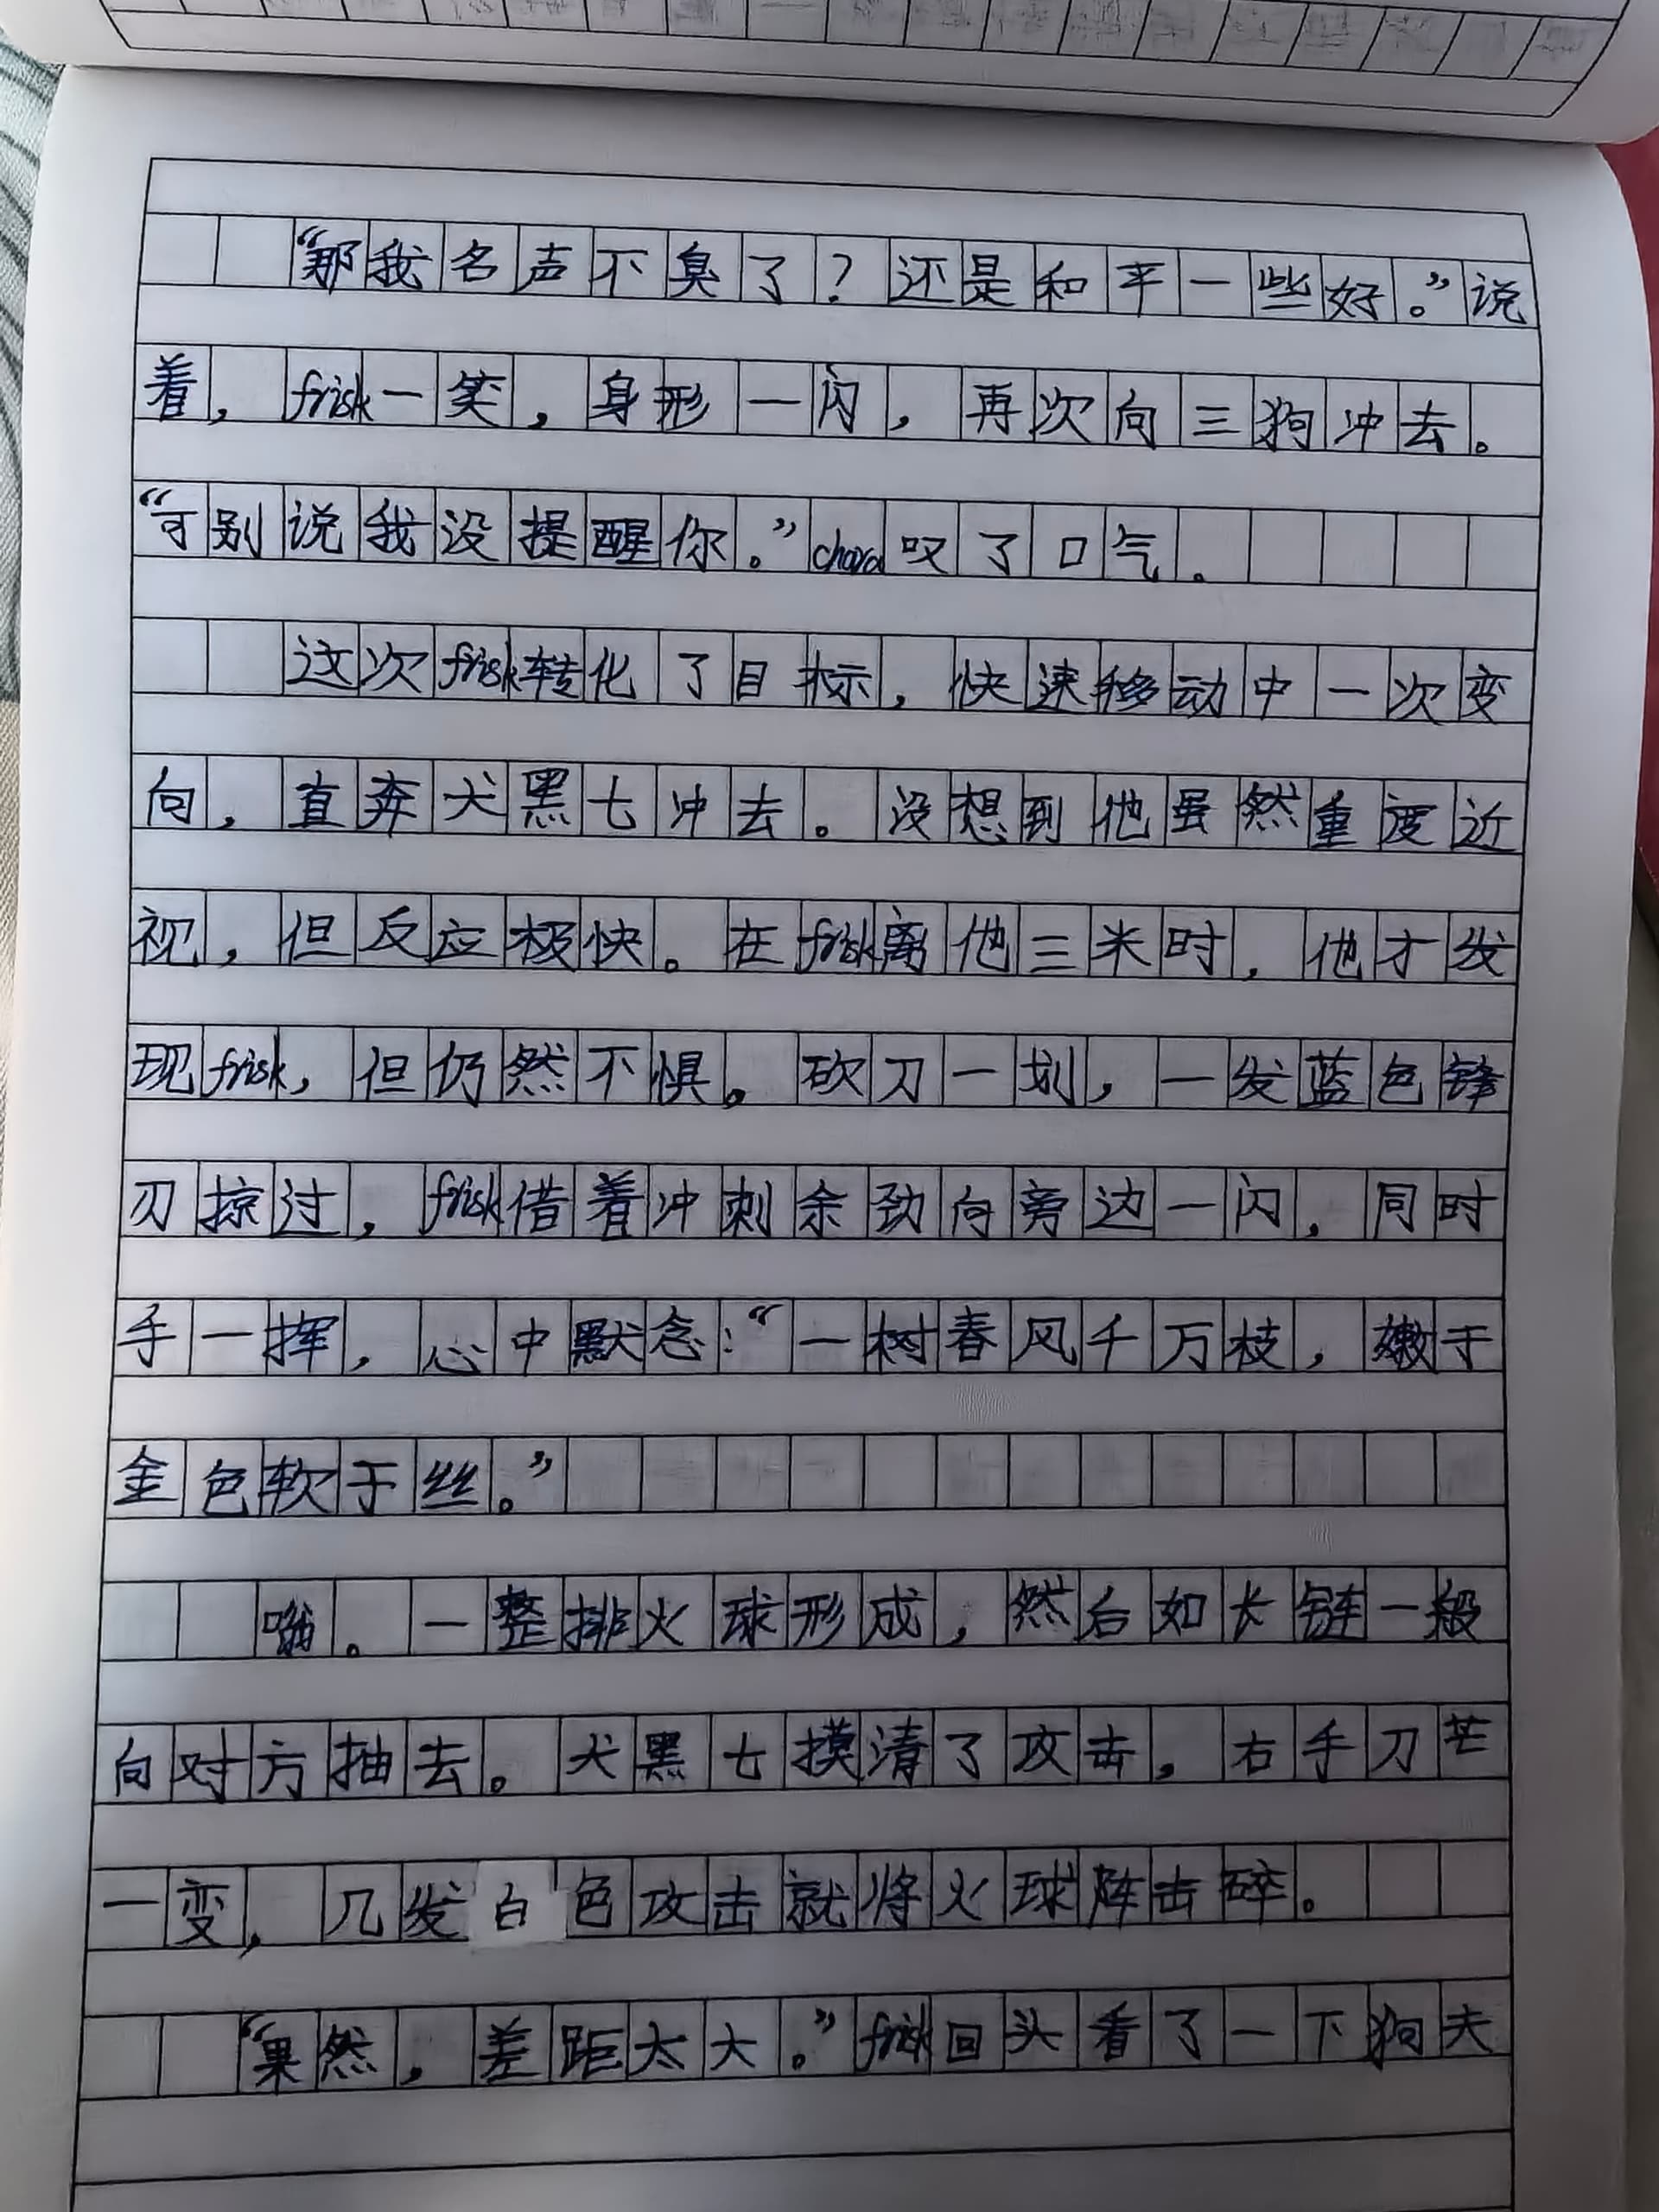 “那我名声不臭了？还是和平一些好。”说
着，frisk一笑，身形一闪，再次向三狗冲去。
“可别说我没提醒你。”chara叹了口气。
这次frisk转化了目标，快速移动中一次变
向，直奔犬黑七冲去。没想到他虽然重度近
视，但反应极快。在frisk离他三米时，他才发
现frisk，但仍然不惧。砍刀一划，一发蓝色锋
刃掠过，frisk借着冲刺余劲向旁边一闪，同时
手一挥，心中默念：“一树春风千万枝，嫩于
金色软于丝。”
嗡。一整排火球形成，然后如长链一般
向对方抽去。犬黑七摸清了攻击，右手刀芒
一变，几发白色攻击就将火球阵击碎。
“果然，差距太大。”frisk回头看了一下狗夫